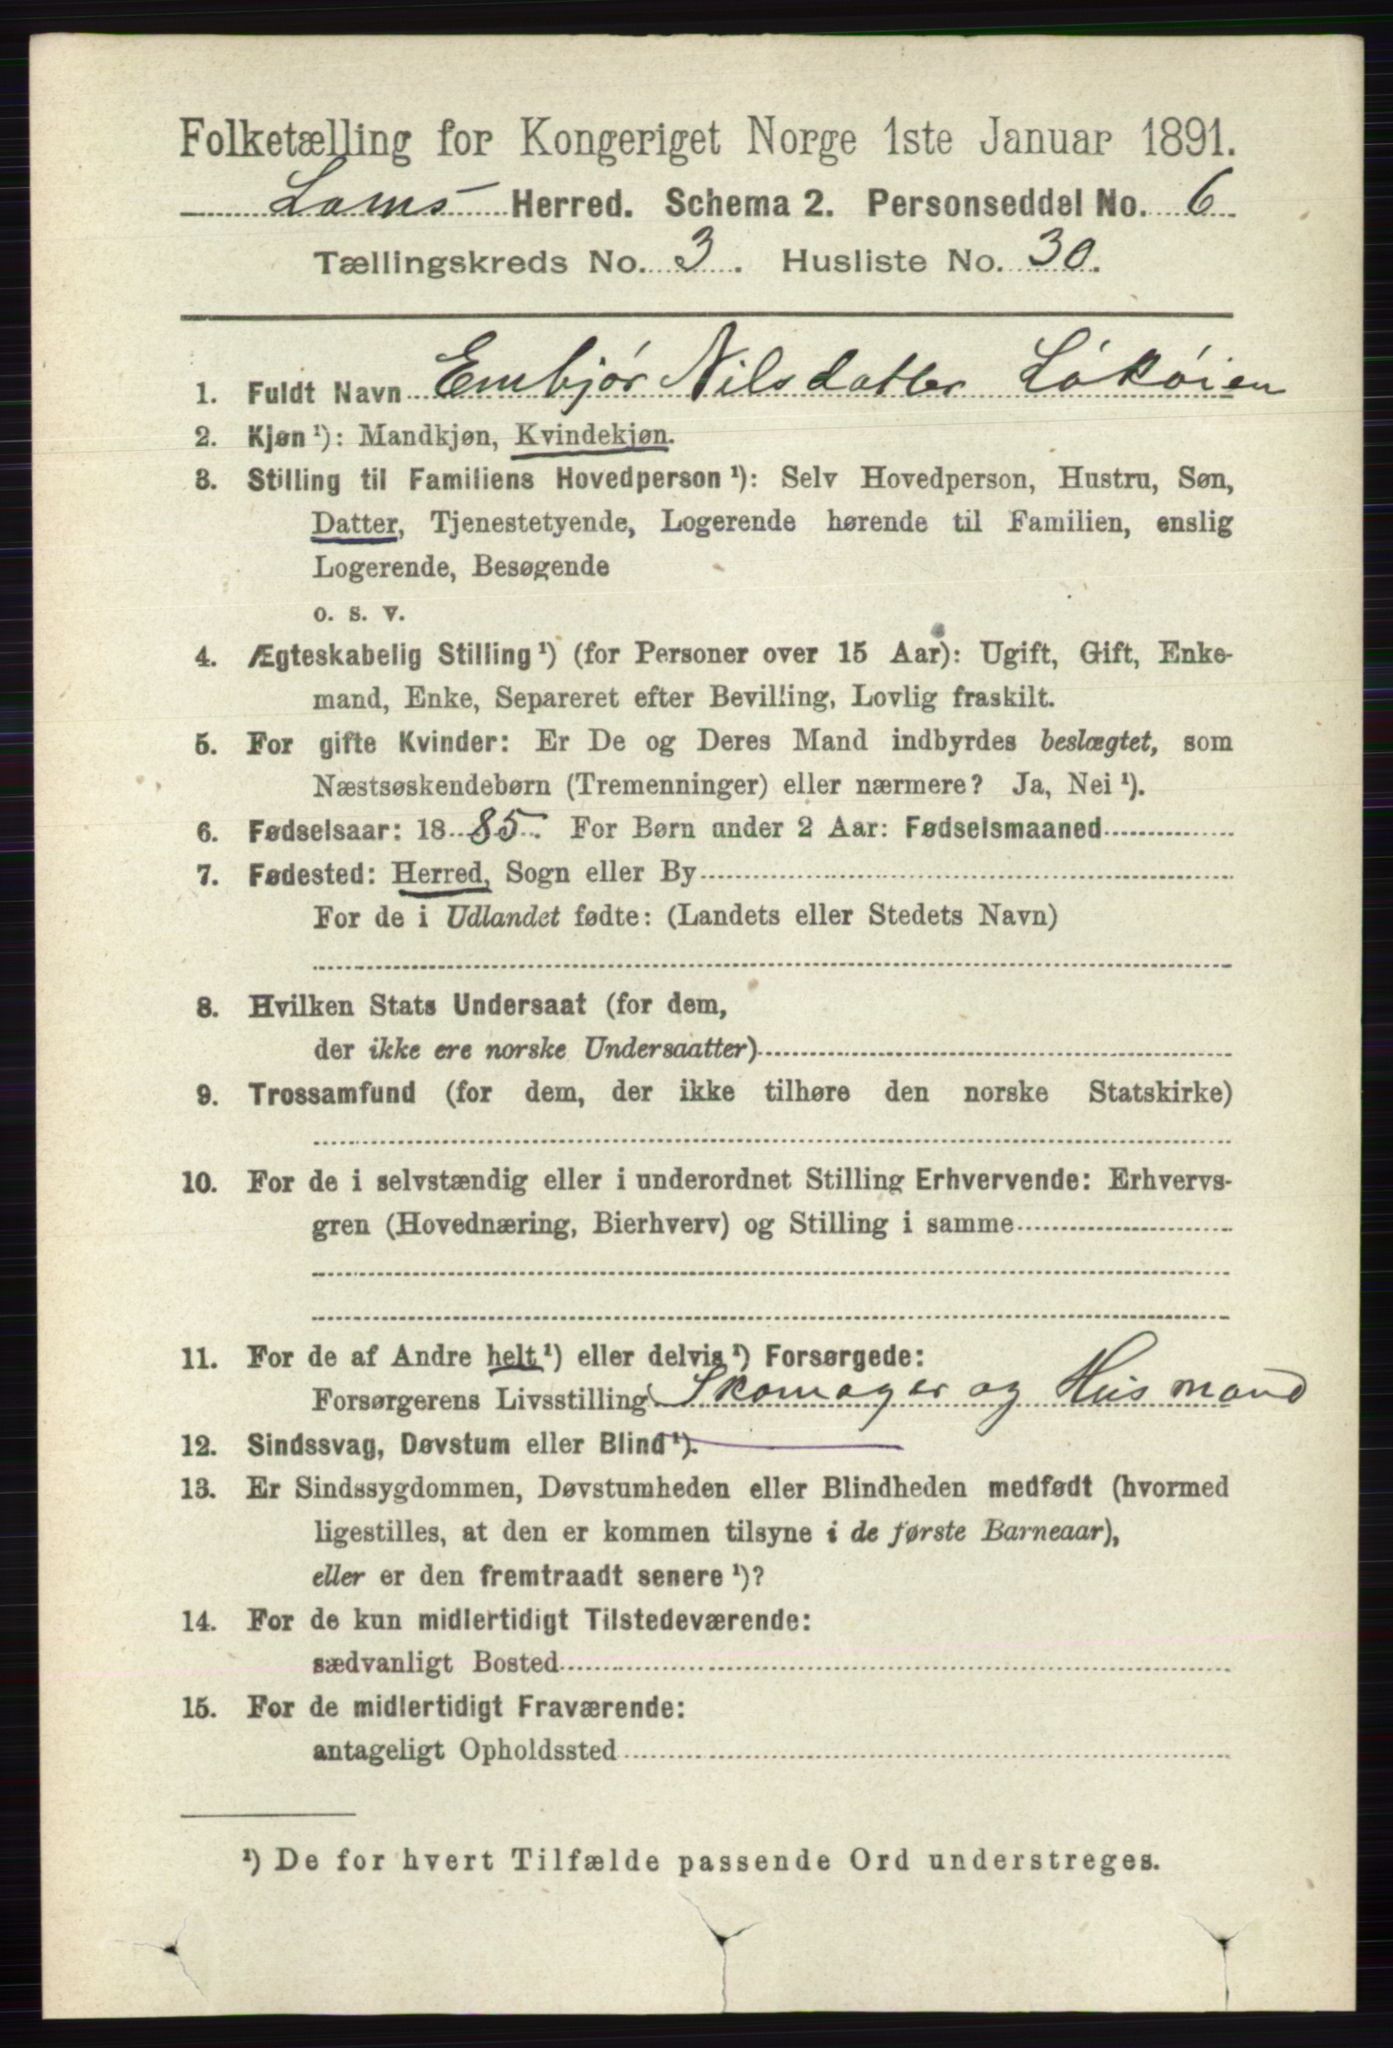 Folketælling for Kongeriget Norge 1ste Januar 1891.
Loms Herred. Schema 2. Personseddel No. 6
Tællingskreds No. 3. Husliste No. 30.
1. Fuldt Navn Embjør Nilsdatter Løkøien
2. Kjøn¹): Mandkjøn, Kvindekjøn.
3. Stilling til Familiens Hovedperson¹): Selv Hovedperson, Hustru, Søn,
Datter, Tjenestetyende, Logerende hørende til Familien, enslig
Logerende, Besøgende
o. s. v.
4. Ægteskabelig Stilling¹) (for Personer over 15 Aar): Ugift, Gift, Enke-
mand, Enke, Separeret efter Bevilling, Lovlig fraskilt.
5. For gifte Kvinder: Er De og Deres Mand indbyrdes beslægtet, som
Næstsøskendebørn (Tremenninger) eller nærmere? Ja, Nei¹).
6. Fødselsaar: 1885. For Børn under 2 Aar: Fødselsmaaned
7. Fødested: Herred, Sogn eller By
For de i Udlandet fødte: (Landets eller Stedets Navn)
8. Hvilken Stats Undersaat (for dem,
der ikke ere norske Undersaatter)
9. Trossamfund (for dem, der ikke tilhøre den norske Statskirke)
10. For de i selvstændig eller i underordnet Stilling Erhvervende: Erhvervs-
gren (Hovednæring, Bierhverv) og Stilling i samme
11. For de af Andre helt¹) eller delvis¹) Forsørgede:
Forsørgerens Livsstilling Skomager og Husmand
12. Sindssvag, Døvstum eller Blind¹).
13. Er Sindssygdommen, Døvstumheden eller Blindheden medfødt (hvormed
ligestilles, at den er kommen tilsyne i de første Barneaar),
eller er den fremtraadt senere¹)?
14. For de kun midlertidigt Tilstedeværende:
sædvanligt Bosted
15. For de midlertidigt Fraværende:
antageligt Opholdssted
¹) De for hvert Tilfælde passende Ord understreges.